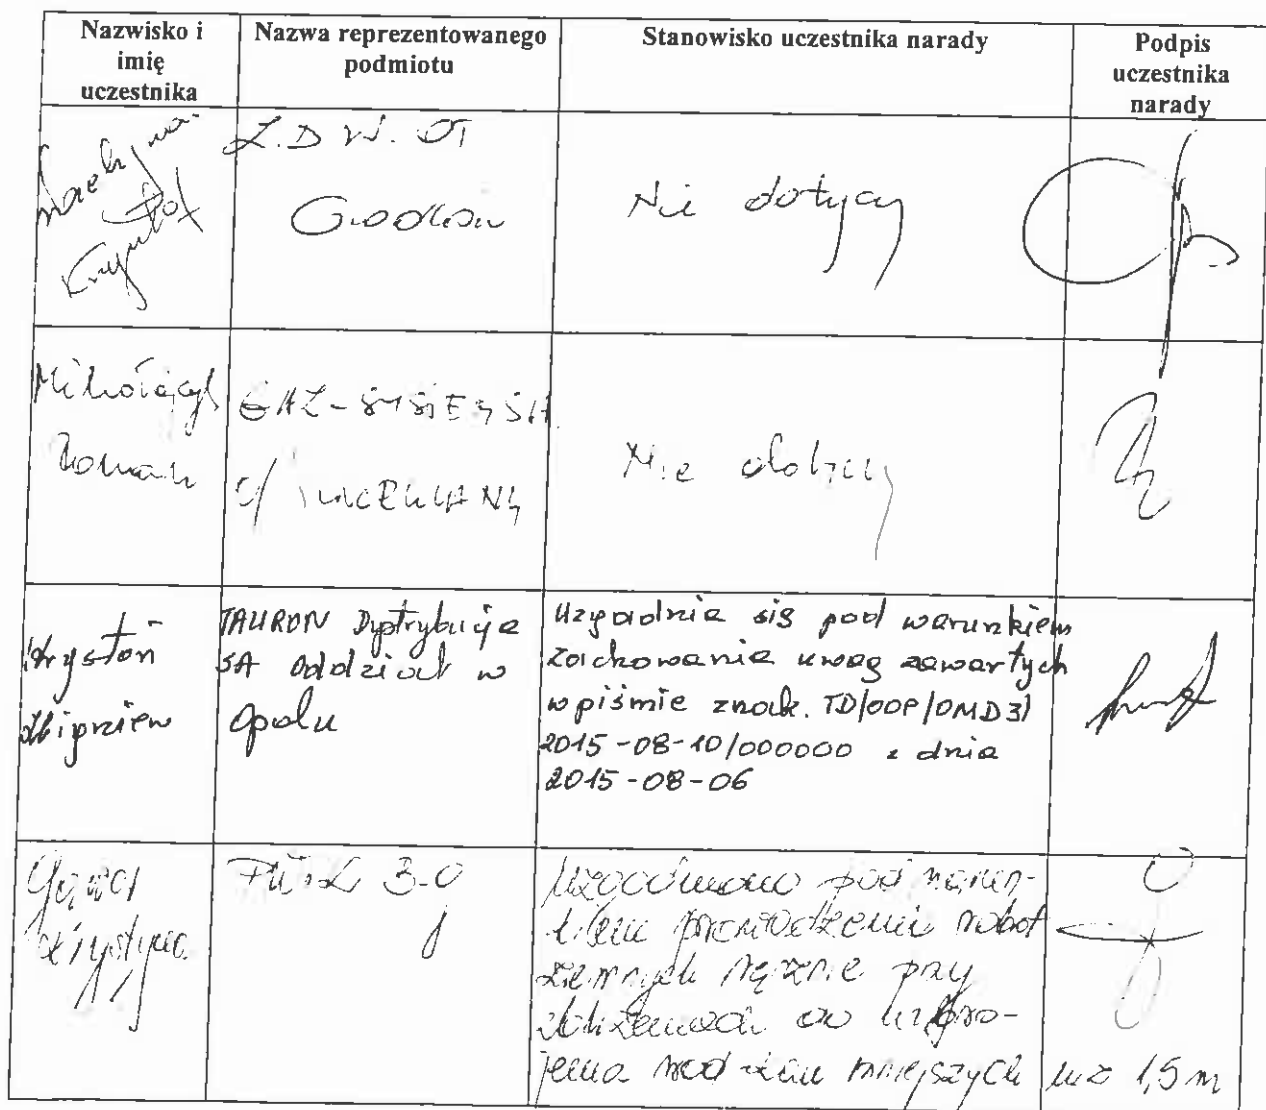 Nazwisko i
imię
uczestnika
Nazwa reprezentowanego
podmiotu
Stanowisko uczestnika narady
Podpis
uczestnika
narady
Z.D W. OT
Grodków
Nie dotyczy
Krzysztof
Mikołajczyk
Roman
GAZ-SYSTEM SA
Nie dotyczy
Krystoń
Zbigniew
TAURON Dystrybucja
SA Oddział w
Opolu
Uzgadnia się pod warunkiem
zachowania uwag zawartych
w piśmie znak. TD/OOP/OMD3/
2015-08-10/000000 z dnia
2015-08-06
Krystyna
Uzgodniono pod warun-
kiem prowadzenia robót
ziemnych ręcznie przy
zbliżeniach do uzbro-
jenia wod-kan mniejszych niż 1,5 m